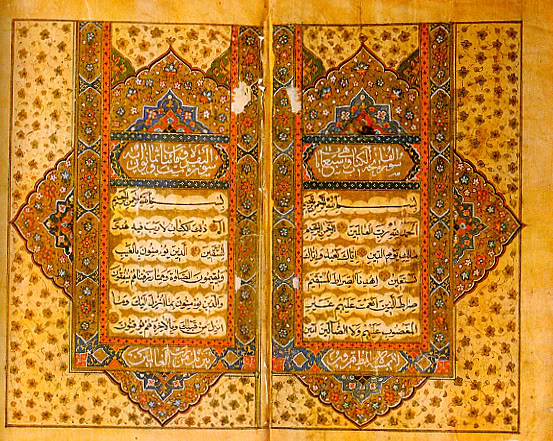 بسم الله الرحمن الرحيم
الحمد لله رب العالمين الرحمن الرحيم
مالك يوم الدين اياك نعبد واياك
نستعين اهدنا الصراط المستقيم
صراط الذين انعمت عليهم غير
المغضوب عليهم ولا الضالين امين
لا يمسه الا المطهرون
سورة البقرة
بسم الله الرحمن الرحيم
الم ذلك الكتاب لا ريب فيه هدى
للمتقين الذين يؤمنون بالغيب
ويقيمون الصلوة ومما رزقناهم ينفقون
والذين يؤمنون بما انزل اليك وما
انزل من قبلك وبالاخرة هم يوقنون
تنزيل من رب العالمين